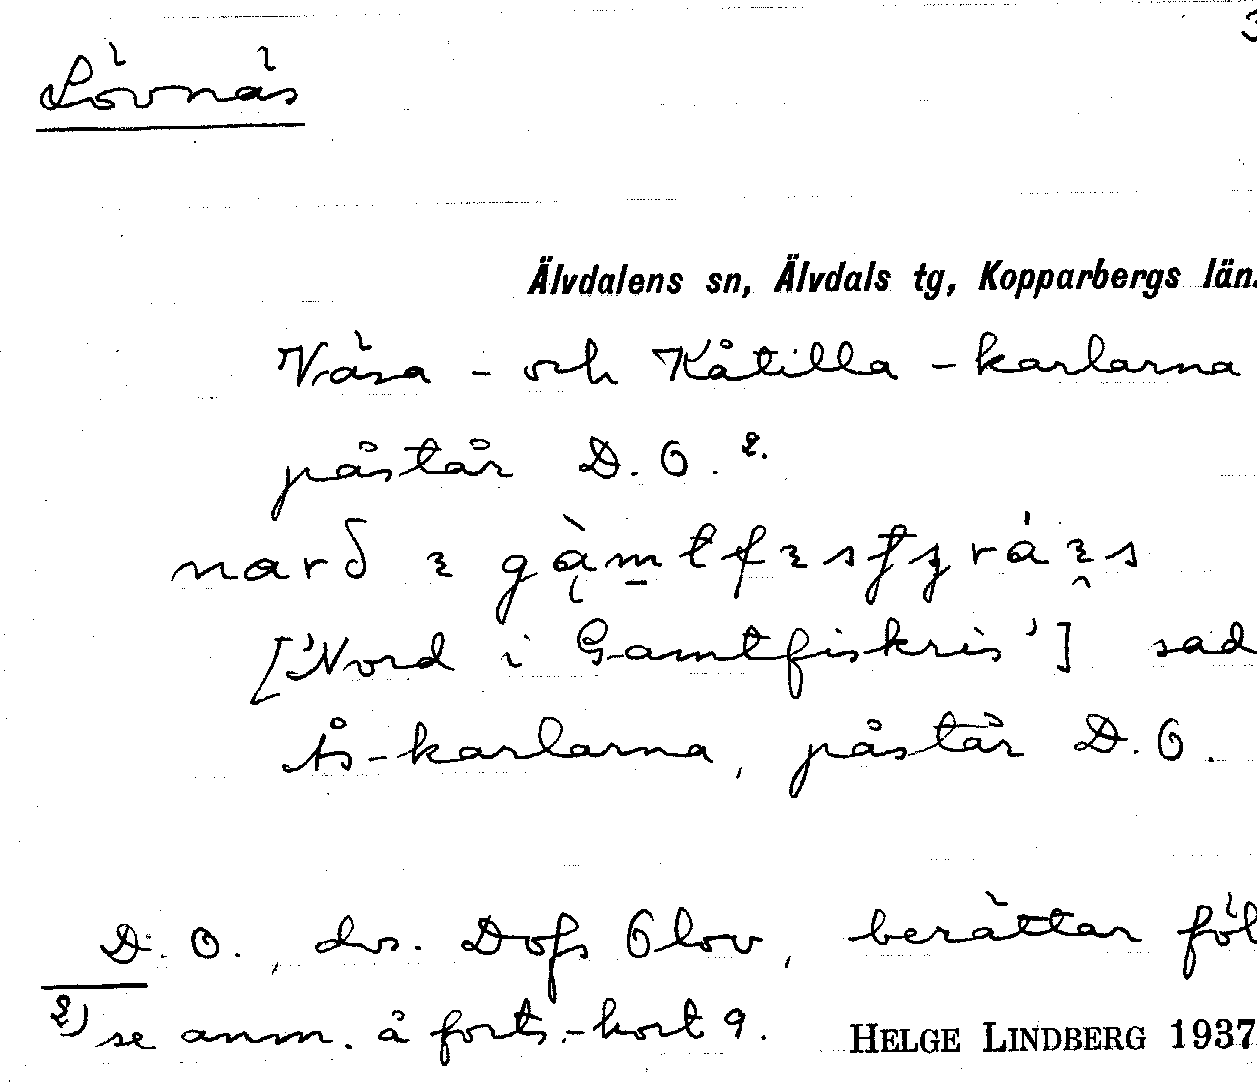 3
Lövnäs
Älvdalens sn, Älvdals tg, Kopparbergs län.
Väsa - och Kåtilla - karlarna
påstår D. O. 2.
['Nord i Gamtfiskris'] sad
Ås-karlarna, påstår D. O.
D. O., dvs. Dofs Olov, berättar föl
2) se anm. å forts.-kort 9.
HELGE LINDBERG 1937